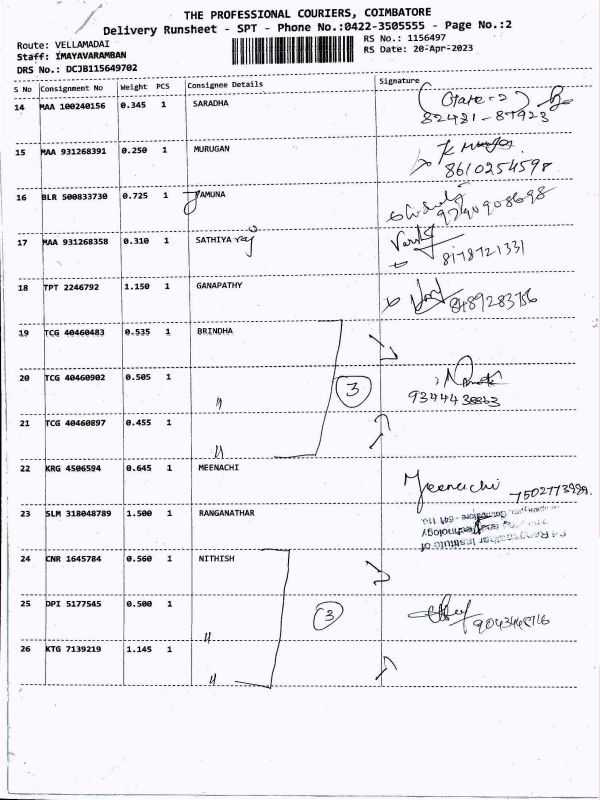 THE PROFESSIONAL COURIERS, COIMBATORE
Delivery Runsheet - SPT - Phone No.:0422-3505555 - Page No.:2
Route: VELLAMADAI
RS No.: 1156497
Staff: IMAYAVARAMBAN
RS Date: 20-Apr-2023
DRS No.: DCJB115649702
S No Consignment No Weight PCS Consignee Details Signature
14 MAA 100240156 0.345 1 SARADHA
82421-87923
15 MAA 931268391 0.250 1 MURUGAN
8610254598
16 BLR 500833730 0.725 1 JAMUNA
9790908698
17 MAA 931268358 0.310 1 SATHIYA raj
8178721331
18 TPT 2246792 1.150 1 GANAPATHY
8489283756
19 TCG 40460483 0.535 1 BRINDHA
20 TCG 40460902 0.505 1 " 3
21 TCG 40460897 0.455 1 "
22 KRG 4506594 0.645 1 MEENACHI Meenachi
23 SLM 318048789 1.500 1 RANGANATHAR
Institute of
Technology
24 CNR 1645784 0.560 1 NITHISH
25 DPI 5177545 0.500 1 " 3
26 KTG 7139219 1.145 1 "